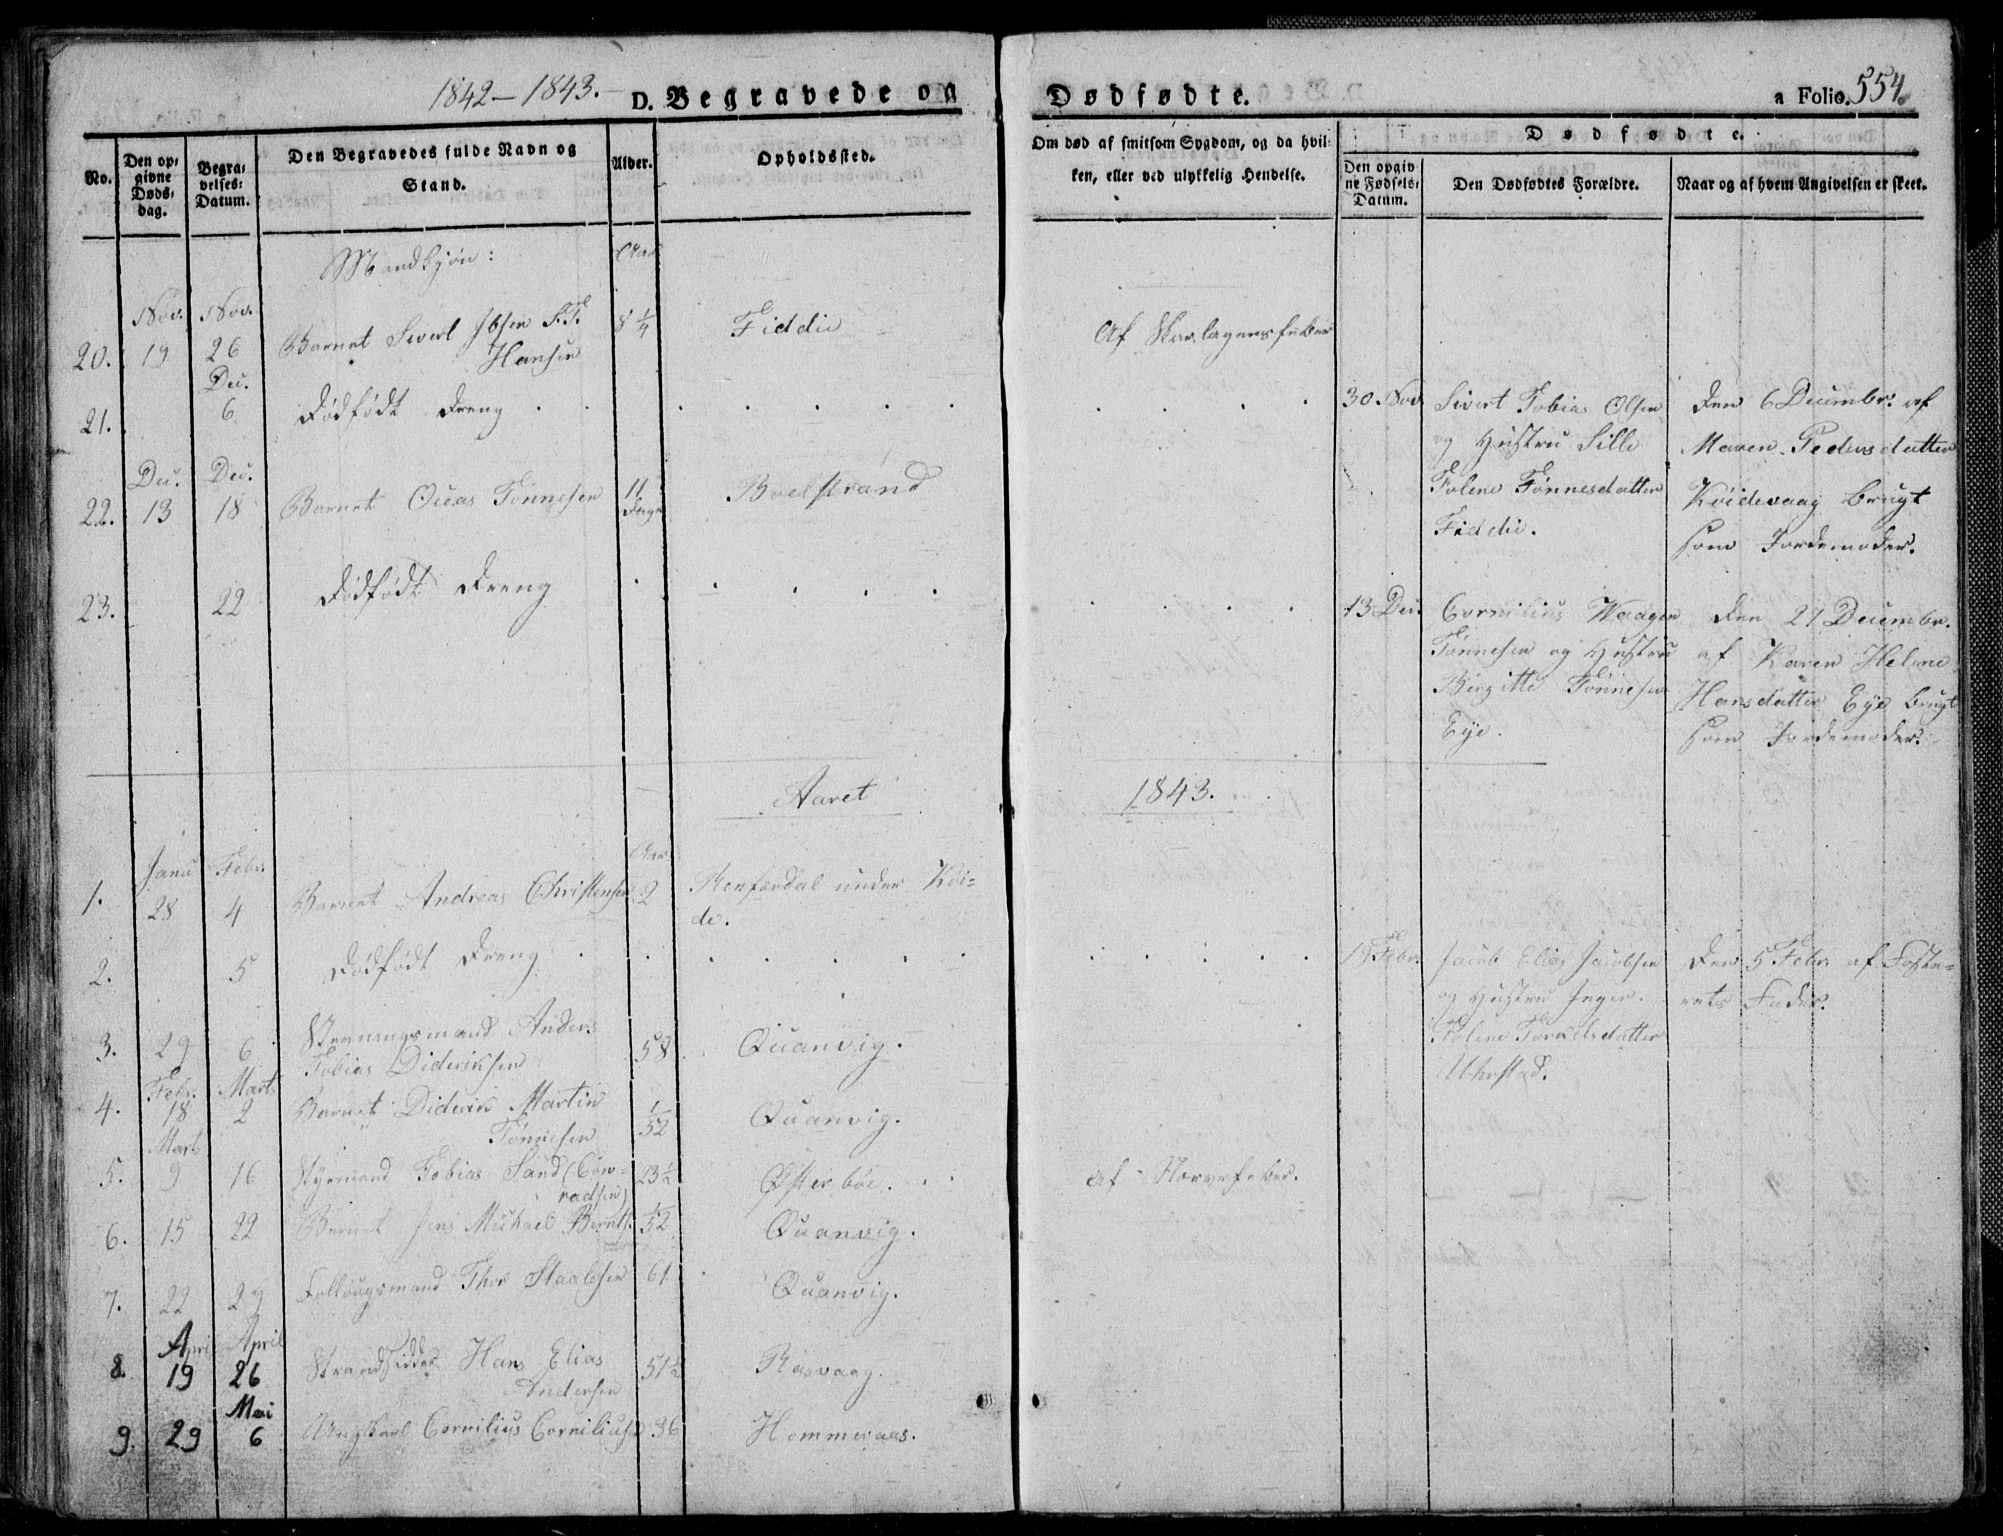 1842–1843.
D. Begravede og
Dødfødte.
a Folio. 554.
No.
Den op-
givne
Døds-
dag.
Begra-
velses-
Datum.
Den Begravedes fulde Navn og
Stand.
Alder.
Opholdssted.
Om død af smitsom Sygdom, og da hvil-
ken, eller ved ulykkelig Hendelse.
Dødfødte.
Den opgiv
ne Fødsels-
Datum.
Den Dødfødtes Forældre.
Naar og af hvem Angivelsen er skeet.
Mandkjøn:
Aar
Nov. Nov.
20. 19 26 Barnet Sivert Ibsen S. T. 8 1/4 Fiddie Af Skarlagensfeber
Hansen
Dec.
21. 6 Dødfødt Dreng . . . . . . . 30 Nov. Sivert Tobias Olsen Den 6 Decembr. af
og Hustru Sille Maren Pedersdatter
Dec. Dec.
22. 13 18 Barnet Tønnesen 11 Dage Boelstrand Tolene Tønnesdatter Køidevaag brugt
Fiddie. som Jordemoder.
23. 22 Dødfødt Dreng . . . . . . 13 Dec. Cornilius Waagen Den 27 Decembr.
Tønnesen og Hustru af Karen Helene
Birgitte Tønnesen Hansdatter Eye brugt
Eye. som Jordemoder.
Aaret 1843.
Janu Febr. Aar
1. 28 4 Barnet Andreas Christensen 2 under Køi-
de.
2. 5 Dødfødt Dreng . . . . . . Febr. Jacob Elias Jacobsen Den 5 Febr. af Foste-
og Hustru Inger rets Fader.
3. 29 6 Anders
Tobias Dideriksen 58 Quanvig. Tolene Torkelsdatter
Uhrstad.
Febr. Mart
4. 18 2 Barnet Diderik Martin 1/52 Quanvig.
Tønnesen
Mart
5. 9 16 Styrmand Tobias Sand (Con- 23 1/2 Østerbøe. Af Nervefeber.
radsen)
6. 15 22 Barnet Jens Michael Bernts. 1/52 Quanvig.
7. 22 29 Follougsmand Thor Staalesen 61 Quanvig.
Apri April
8. 19 26 Strandsidder Hans Elias 51 1/2 Rasvaag.
Andersen
Mai
9. 29 6 Ungkarl Cornilius Corniliusen 36 Hommeraas.